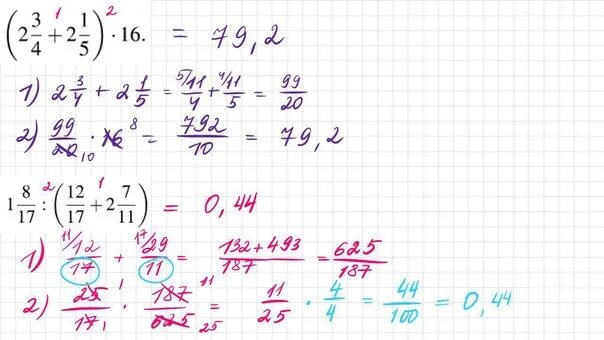 (2 3/4 + 2 1/5) · 16. = 79,2
1 2
1) 2 3/4 + 2 1/5 = 5/ 11/4 + 4/ 11/5 = 99/20
2) 99/20 10 · 16 8 = 792/10 = 79,2
1 8/17 : (12/17 + 2 7/11) = 0,44
2 1
1) 11/ 12/17 + 17/ 29/11 = 132+493/187 = 625/187
2) 25 1/17 1 · 187 11/625 25 = 11/25 · 4/4 = 44/100 = 0,44